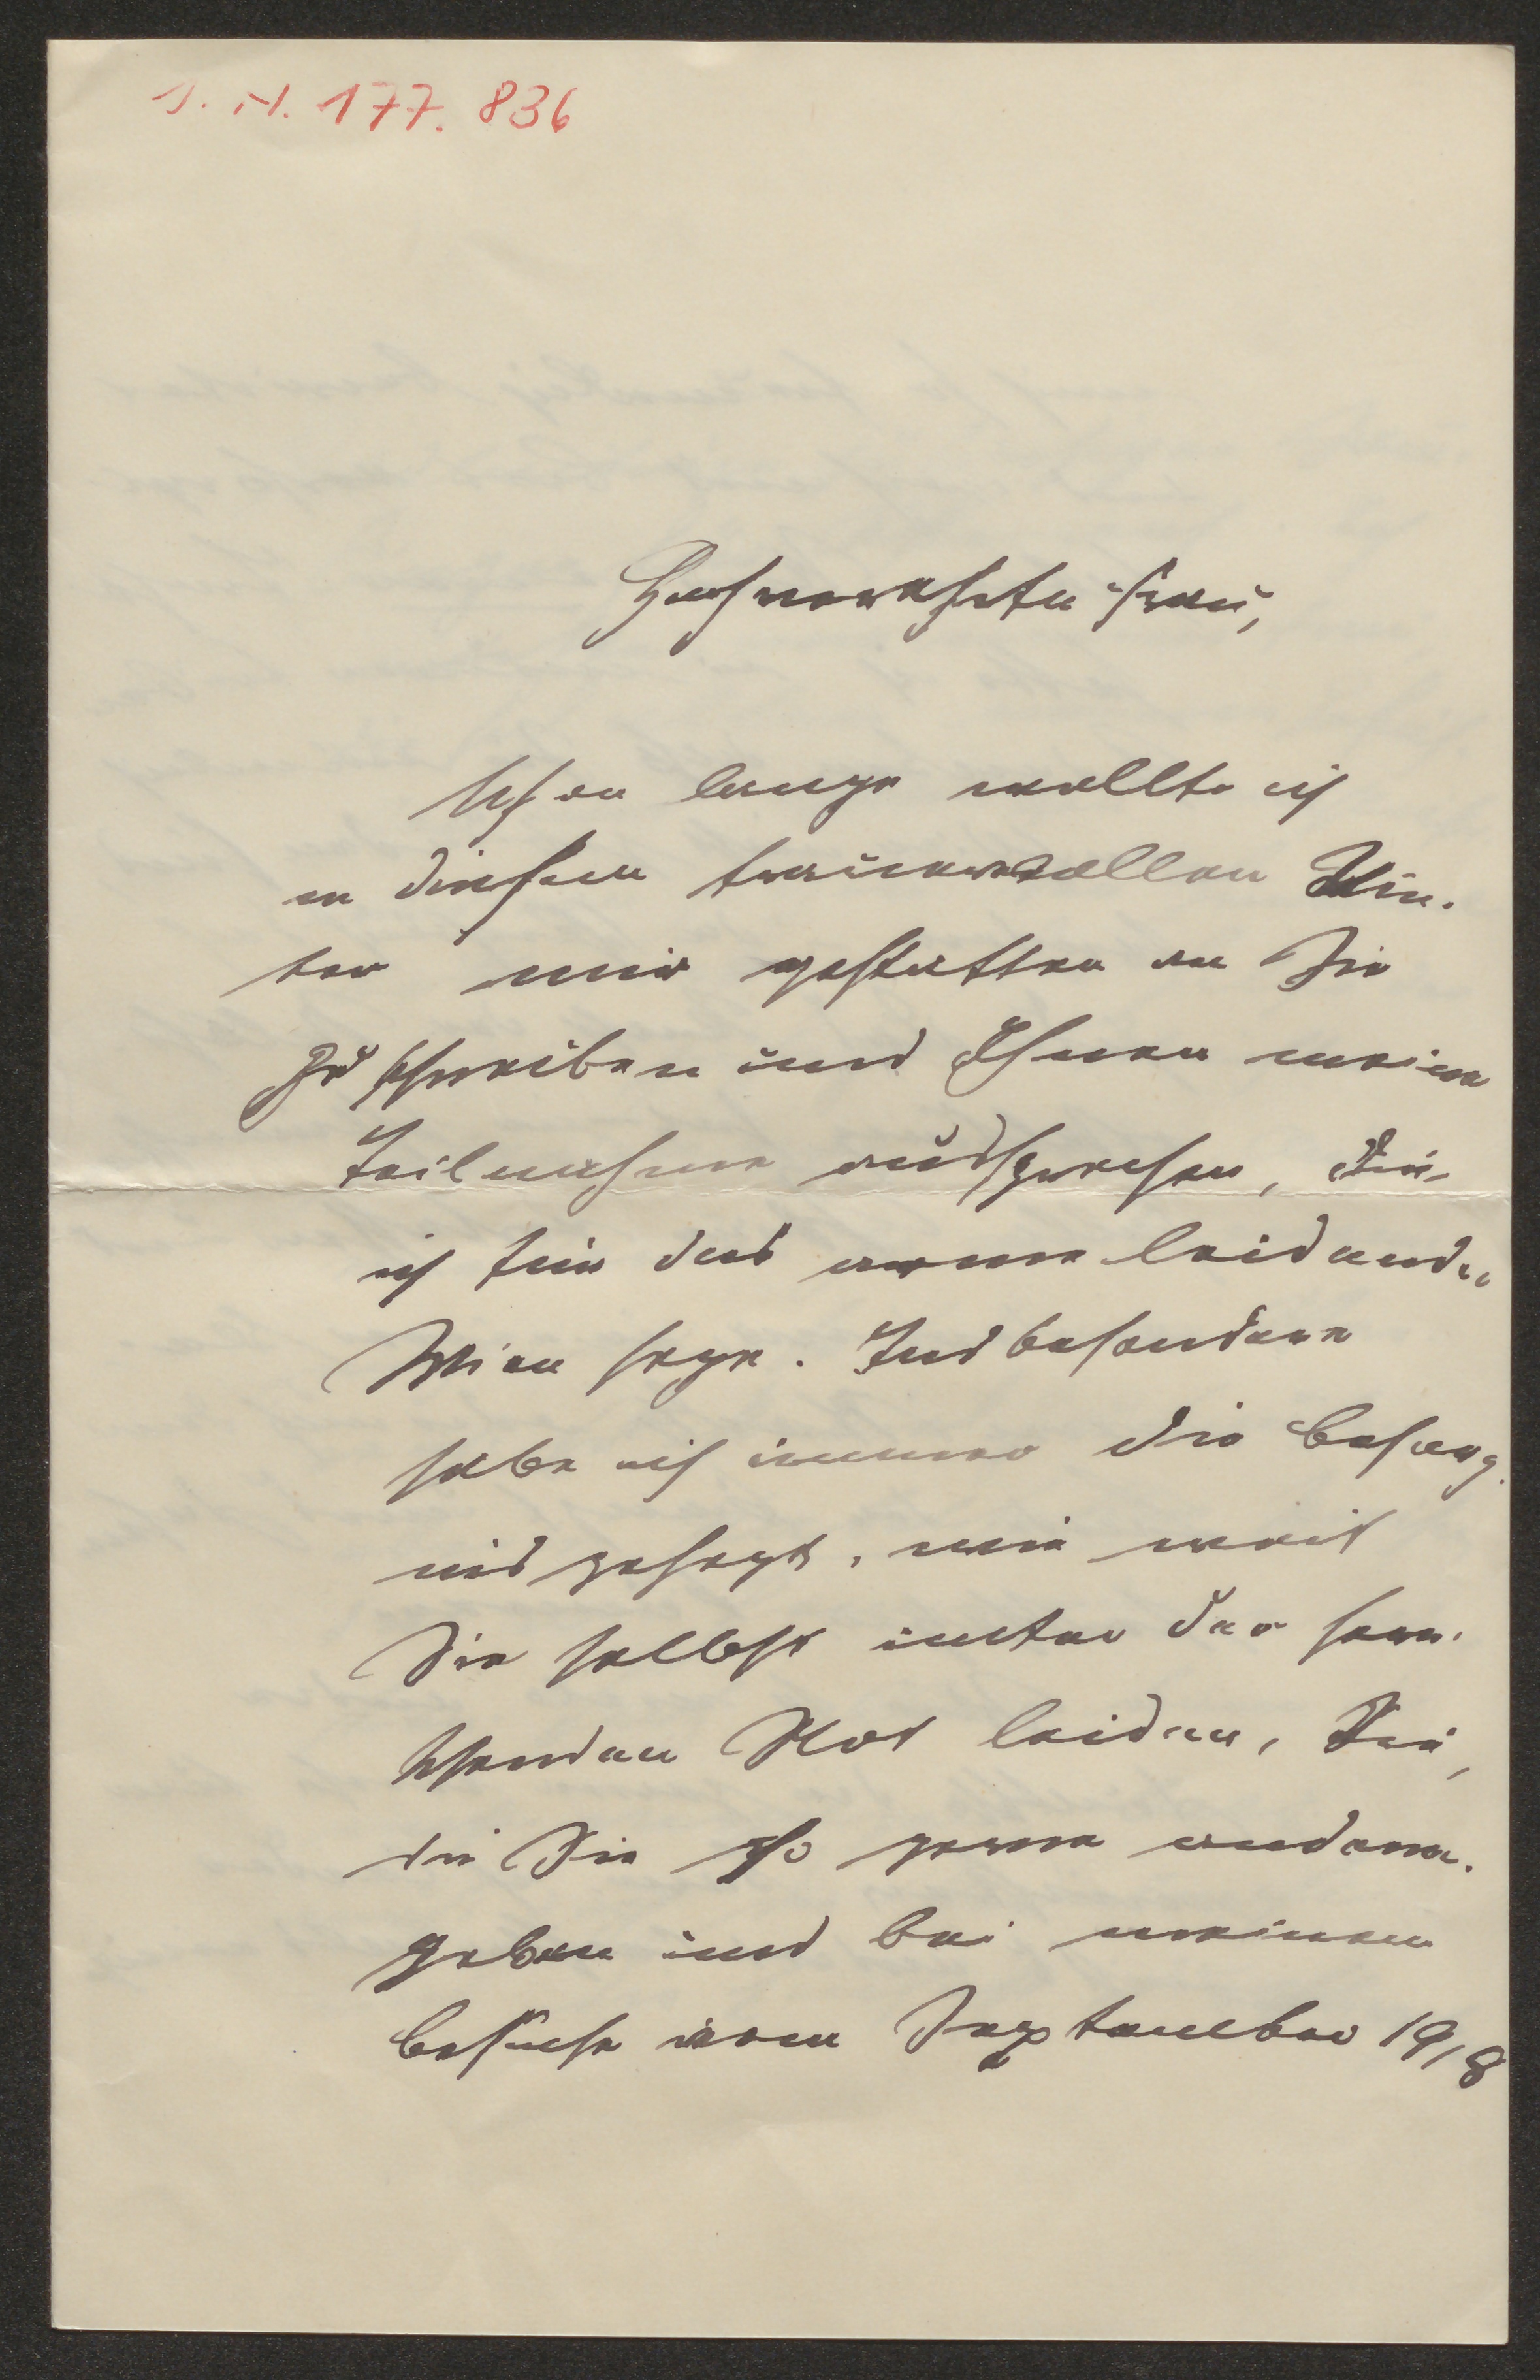 I. N. 177.836
Hochverehrte Frau,
schon lange wollte ich
in diesem trauervollen Win-
ter mir gestatten an Sie
zu schreiben und Ihnen meine
Teilnahme aussprechen, die
ich für das arme leidende
Wien hege. Insbesondere
habe ich immer die Besorg-
nis gehegt, wie weit
Sie selbst unter der herr-
schenden Not leiden, Sie,
die Sie so gerne anderen
geben und bei meinem
Besuche vom September 1918